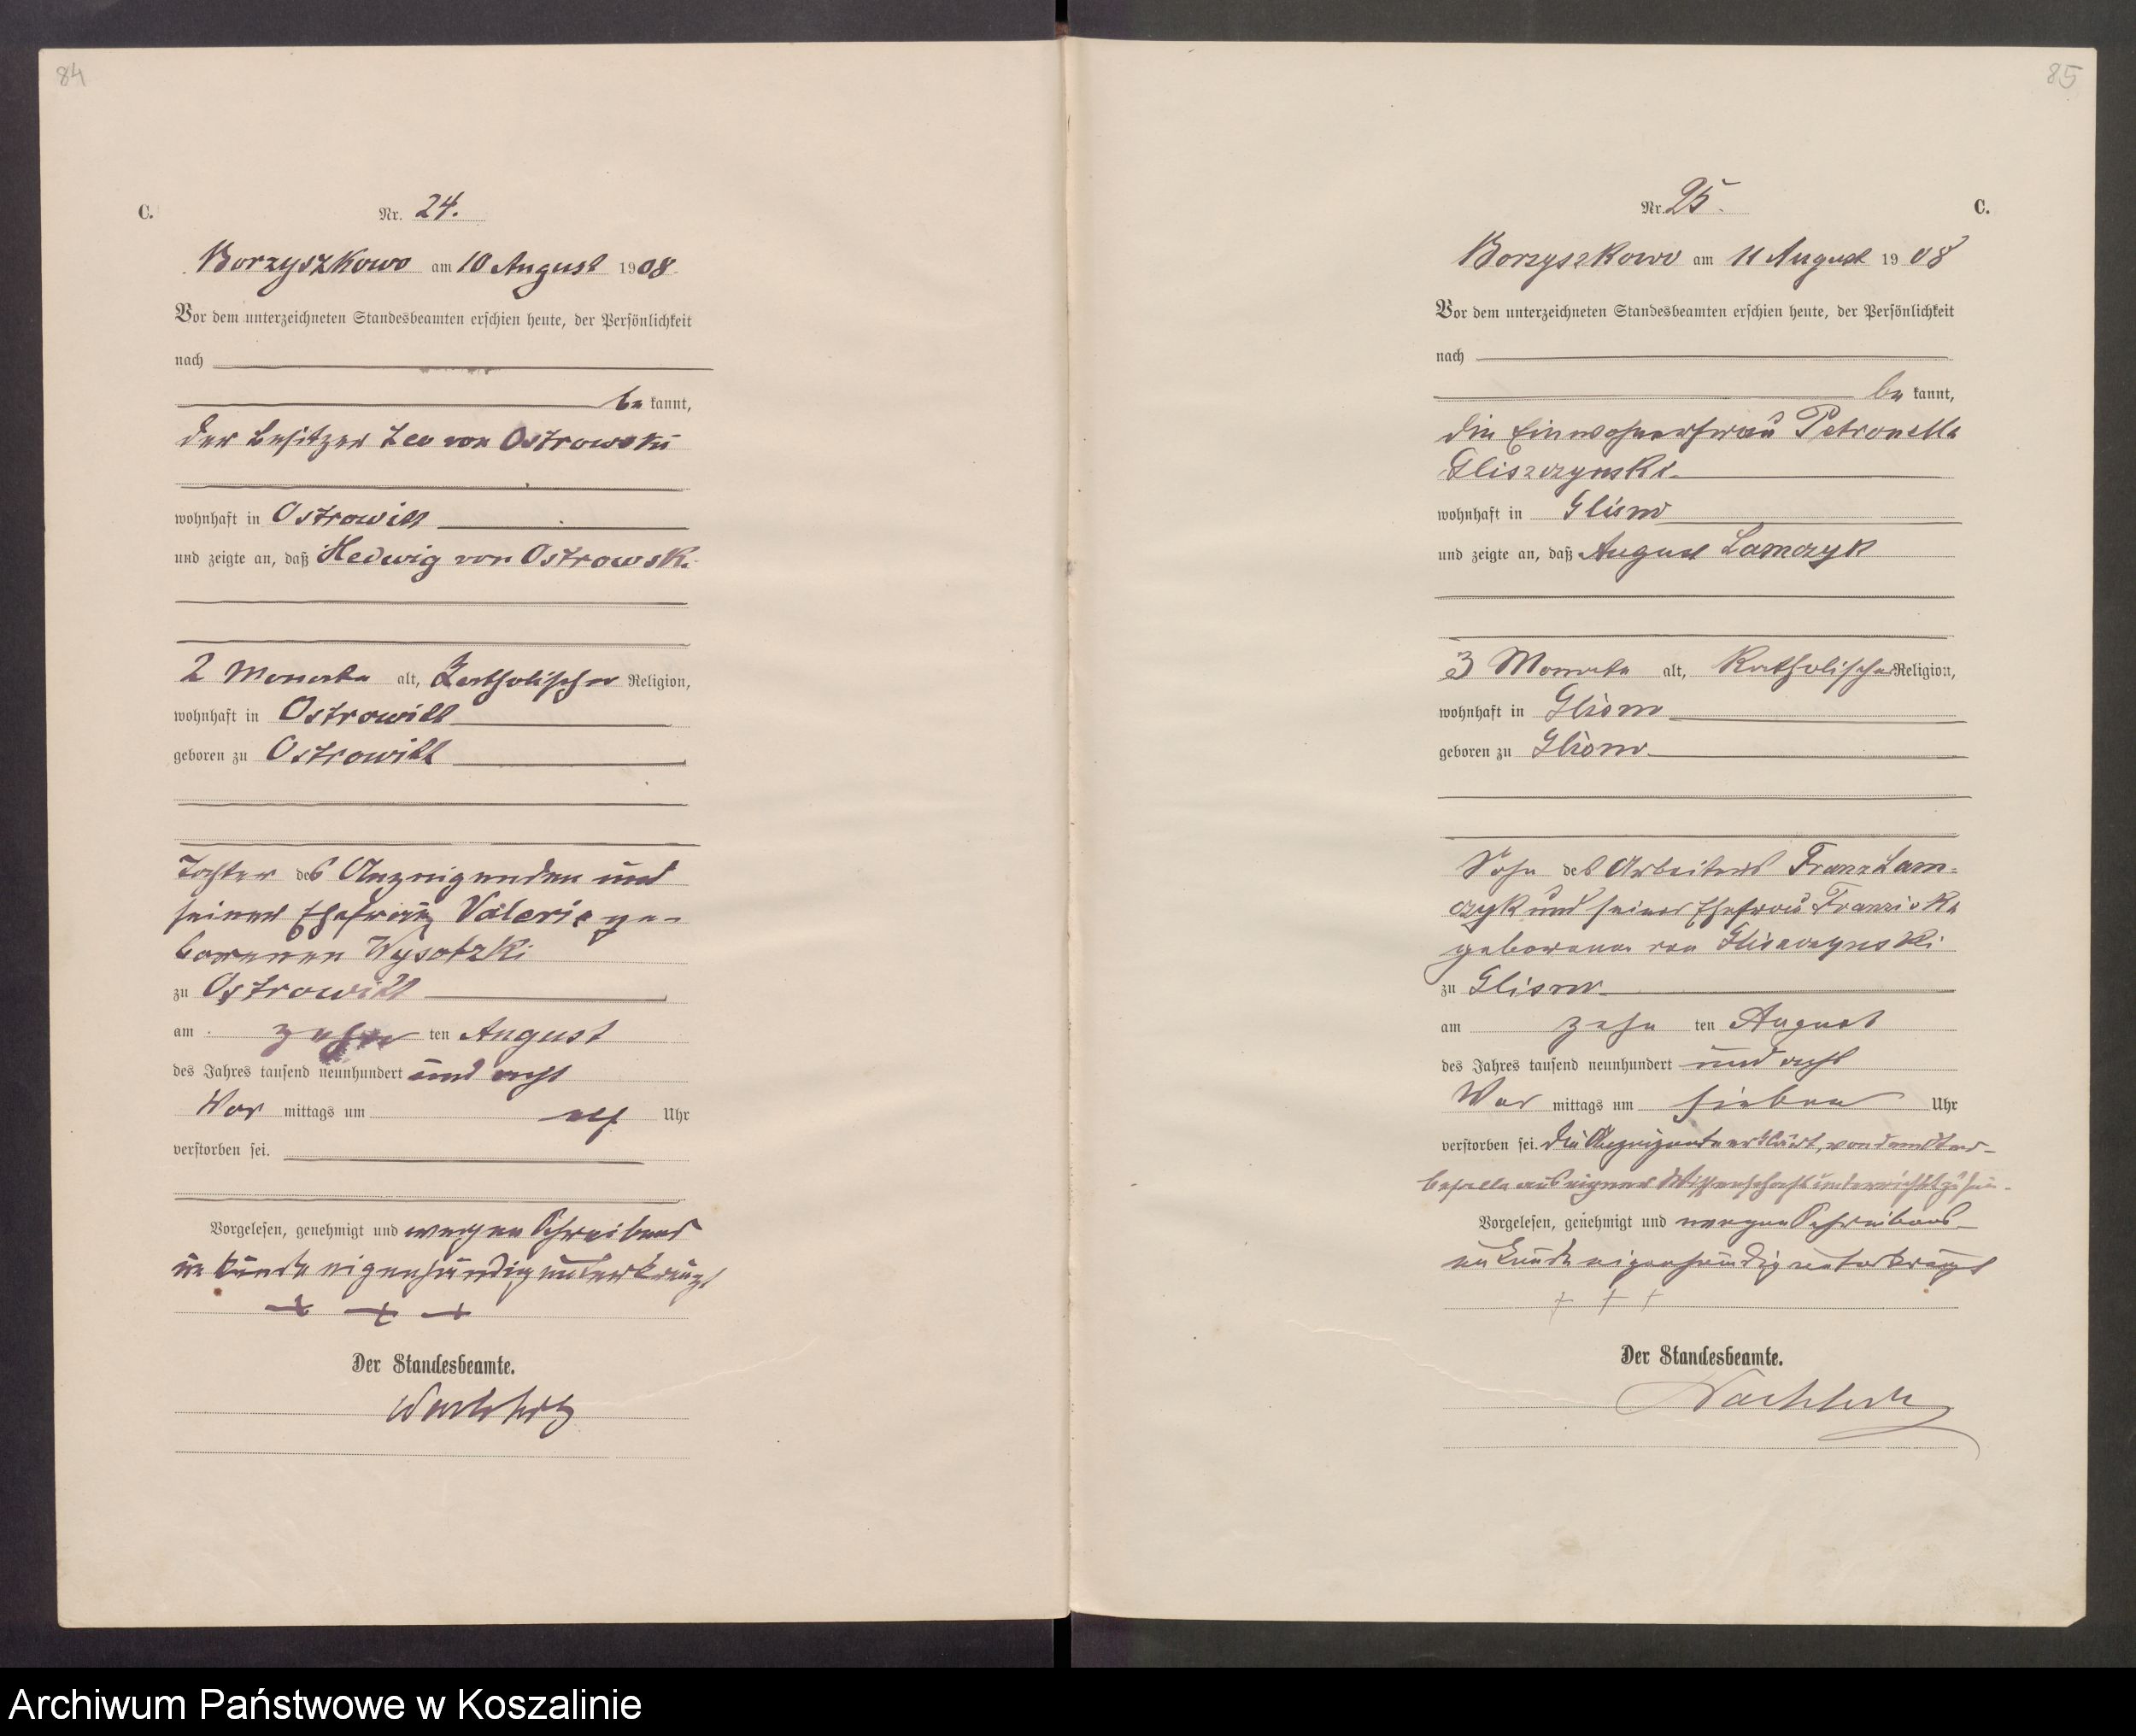 84
C.
Nr. 24.
Borzyszkowo am 10 August 1908
Vor dem unterzeichneten Standesbeamten erschien heute, der Persönlichkeit
nach
be kannt,
der Besitzer Leo von Ostrowski
wohnhaft in Ostrowitt
und zeigte an, daß Hedwig von Ostrowski
2 Monate alt, katholischer Religion,
wohnhaft in Ostrowitt
geboren zu Ostrowitt
Tochter des Anzeigenden und
seiner Ehefrau Valerie ge-
borenen Wysotzki
zu Ostrowitt
am zehn ten August
des Jahres tausend neunhundert und acht
Vor mittags um elf Uhr
verstorben sei.
Vorgelesen, genehmigt und wegen Schreibens
unkunde eigenhändig unterkreuzt
+ + +
Der Standesbeamte.
85
Nr. 25.
C.
Borzyszkowo am 11 August 1908
Vor dem unterzeichneten Standesbeamten erschien heute, der Persönlichkeit
nach
be kannt,
die Einwohnerfrau Petronella
Gliszczynski
wohnhaft in Glisno
und zeigte an, daß August Lamczyk
3 Monate alt, katholischer Religion,
wohnhaft in Glisno
geboren zu Glisno
Sohn des Arbeiters Franz Lam-
czyk und seiner Ehefrau Franziska
geborenen von Gliszczynski
zu Glisno
am zehn ten August
des Jahres tausend neunhundert und acht
Vor mittags um sieben Uhr
verstorben sei. Die Anzeigende erklärt, von dem Ster-
befalle aus eigener Wissenschaft unterrichtet zu sein.
Vorgelesen, genehmigt und wegen Schreibens
unkunde eigenhändig unterkreuzt
+ + +
Der Standesbeamte.
Archiwum Państwowe w Koszalinie